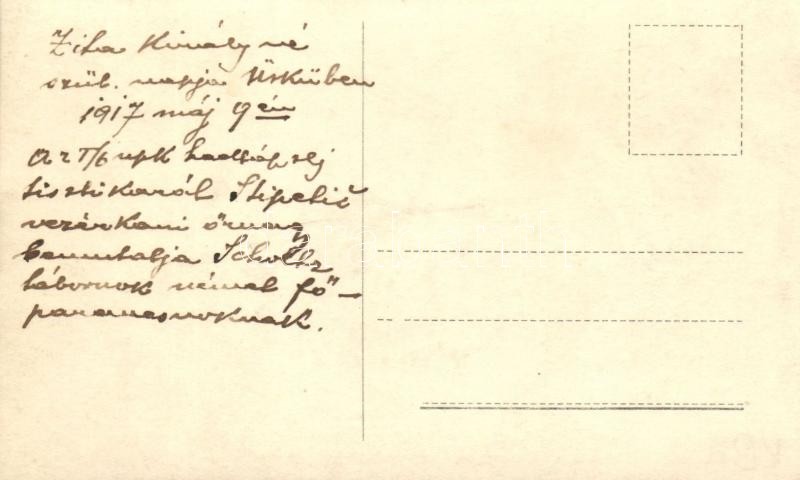 Zita Királyné
szül. napja Üsküben
1917 máj 9 én
Az upk hadtáp
tisztikarát Stipetić
vezérkari őrnagy
bemutatja Scholtz
tábornok német fő-
parancsnoknak.